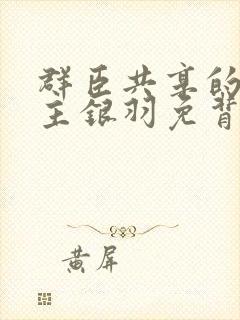 群臣共享的
主银羽免背
黄屏